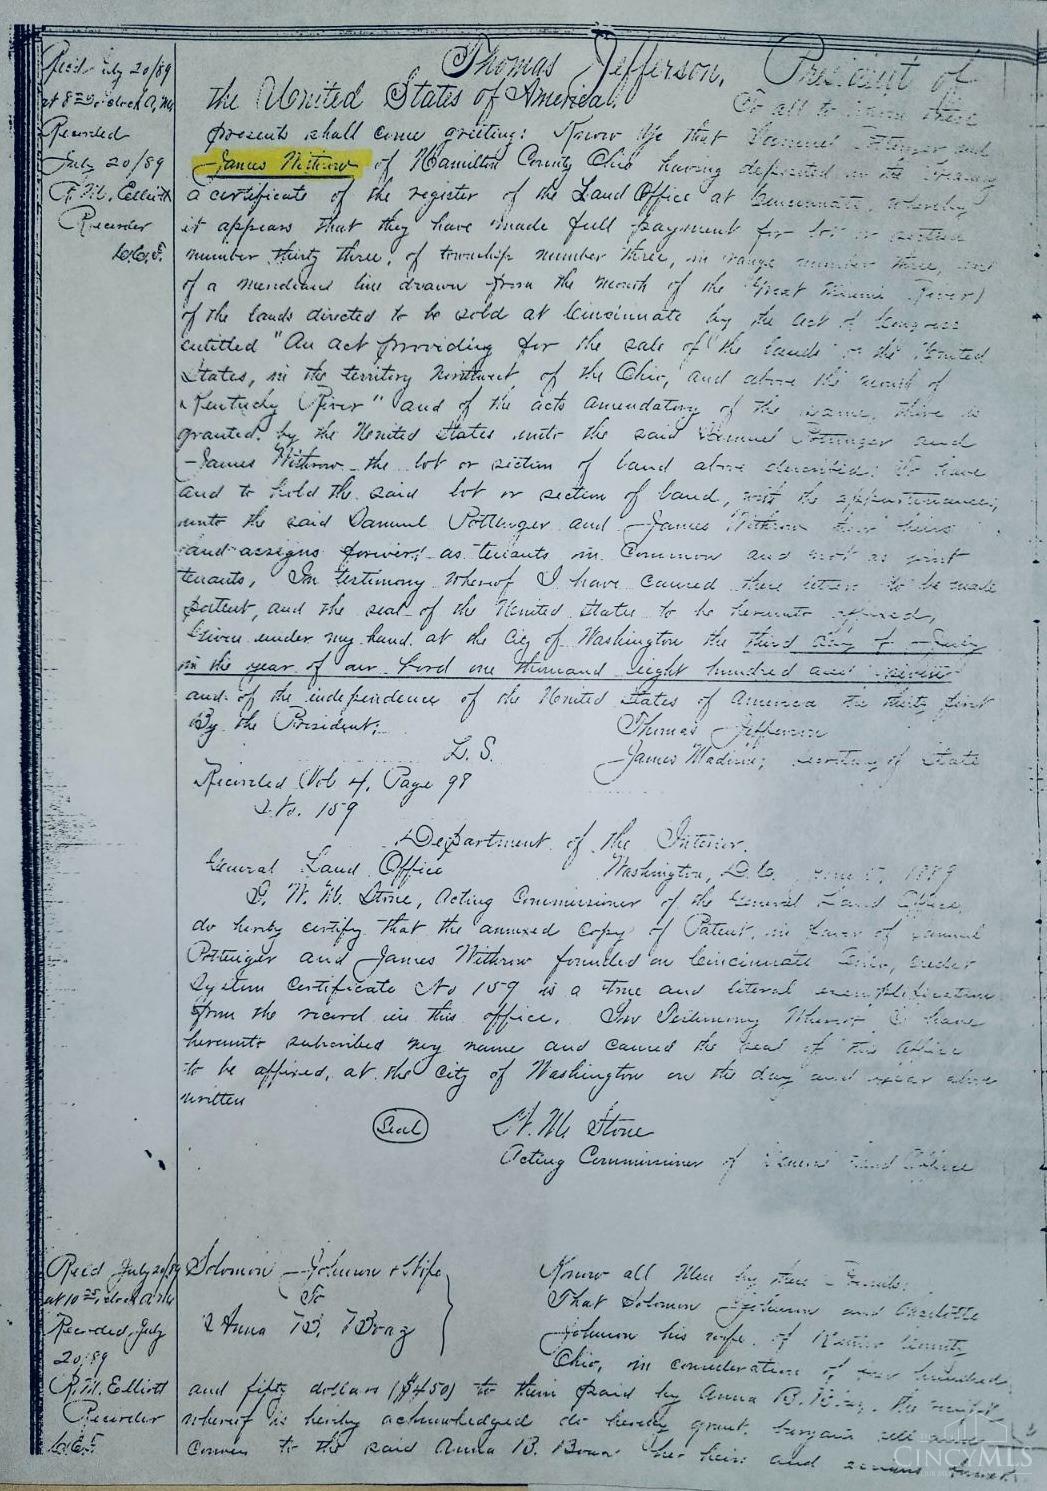 Rec'd July 20/89
at 8 25 o'clock A.M.
Recorded
July 20/89
Recorder
Thomas Jefferson, President of
the United States of America, To all to whom these
presents shall come greeting: Know Ye that Samuel Pottenger and
James Withrow of Hamilton County Ohio having deposited in the Treasury
a certificate of the register of the Land Office at Cincinnati, whereby
it appears that they have made full payment for lot or section
number thirty three, of township number three, in range number three,
of a meridian line drawn from the mouth of the Great Miami River)
of the lands directed to be sold at Cincinnati by the act of Congress
entitled "An act providing for the sale of the lands of the United
States, in the territory Northwest of the Ohio, and above the mouth of
Kentucky River" and of the acts amendatory of the same, there is
granted, by the United States unto the said Samuel Pottenger and
James Withrow the lot or section of land above described: To have
and to hold the said lot or section of land, with the appurtenances,
unto the said Samuel Pottenger and James Withrow their heirs
and assigns forever, as tenants in common and not as joint
tenants, In testimony whereof I have caused these letters to be made
patent, and the seal of the United States to be hereunto affixed,
Given under my hand at the City of Washington the third day of July
in the year of our Lord one thousand eight hundred and seven
and of the independence of the United States of America the thirty first
By the President: Thomas Jefferson
L. S. James Madison, Secretary of State
Recorded Vol 4, Page 98
No. 159
Department of the Interior,
General Land Office Washington, D.C. 1889
I, W. M. Stone, Acting Commissioner of the General Land Office,
do hereby certify that the annexed copy of Patent, in favor of Samuel
Pottenger and James Withrow founded on Cincinnati Ohio, Credit
System Certificate No 159 is a true and literal exemplification
from the record in this office. In Testimony Whereof I have
hereunto subscribed my name and caused the seal of this office
to be affixed, at the city of Washington on the day and year above
written
Seal W. M. Stone
Acting Commissioner of General Land Office
Rec'd July 20/89
at 10 25 o'clock A.M.
Recorded, July
20/89
R. M. Elliott
Recorder
Solomon Johnson & Wife
To
Anna B.
Know all Men by these Presents:
That Solomon Johnson and Charlotte
Johnson his wife, of County
Ohio, in consideration of four hundred
and fifty dollars ($450) to them paid by Anna B. the receipt
whereof is hereby acknowledged do hereby grant, bargain sell and
convey to the said Anna B. her heirs and assigns forever
CINCYMLS